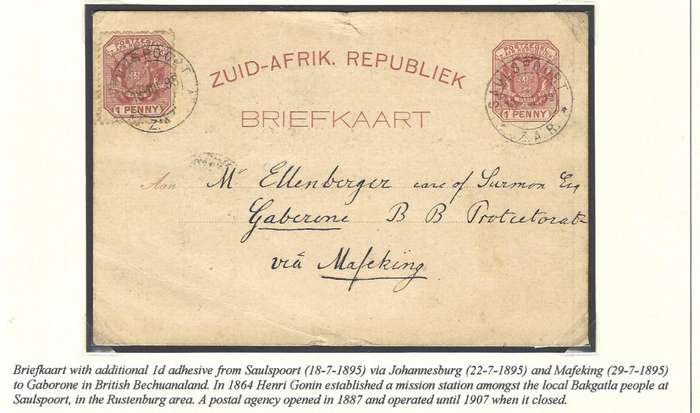 POSTZEGEL
1 PENNY
ZUID-AFRIK. REPUBLIEK
BRIEFKAART
POSTZEGEL
1 PENNY
SAULSPOORT
Z.A.R.
Aan Mr Ellenberger care of Surmon Esq
Gaberone B B Protectorate
via Mafeking
Briefkaart with additional 1d adhesive from Saulspoort (18-7-1895) via Johannesburg (22-7-1895) and Mafeking (29-7-1895)
to Gaborone in British Bechuanaland. In 1864 Henri Gonin established a mission station amongst the local Bakgatla people at
Saulspoort, in the Rustenburg area. A postal agency opened in 1887 and operated until 1907 when it closed.